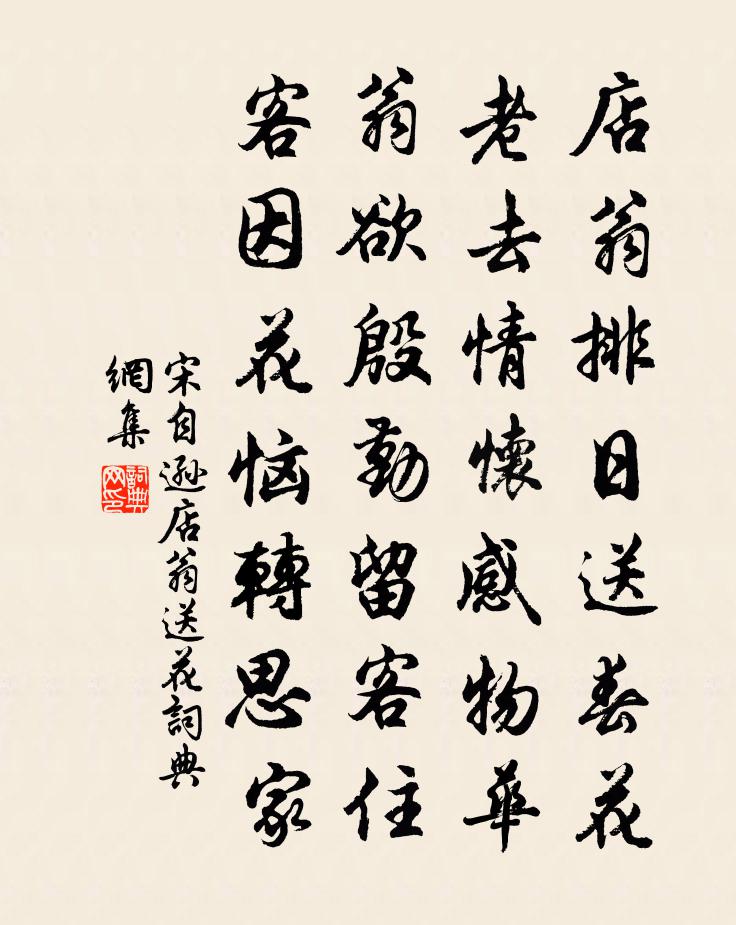 店翁排日送春花
老去情懷感物華
翁欲殷勤留客住
客因花惱轉思家
宋自遜店翁送花詞典
網集
詞典
网印